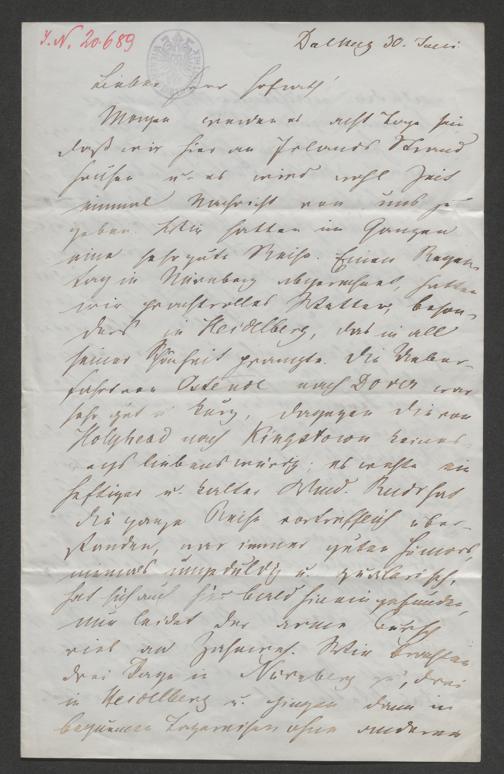 I.N. 20.689
Dalkey 30. Juni
Lieber Herr Hofrath!
Morgen werden es acht Tage sein
daß wir hier an Irlands Strand
hausen u. es wird wohl Zeit
einmal Nachricht von uns zu
geben. Wir hatten im Ganzen
eine sehr gute Reise. Einen Regen-
tag in Nürnberg abgerechnet, hatten
wir prachtvolles Wetter, beson-
ders in Heidelberg, das in all
seiner Schönheit prangte. Die Ueber-
fahrt von Ostende nach Dover war
sehr gut u. kurz, dagegen die von
Holyhead nach Kingstown keines-
wegs liebenswürdig; es wehte ein
heftiger u. kalter Wind. Rudi hat
die ganze Reise vortrefflich über-
standen, war immer guten Humors,
niemals ungeduldig u. quälerisch,
hat sich auch hier bald hinein gefunden,
nur leidet der arme Bursch
viel an Zahnweh. Wir brachten
drei Tage in Nürnberg zu, drei
in Heidelberg u. gingen dann in
bequemen Tagereisen ohne anderen